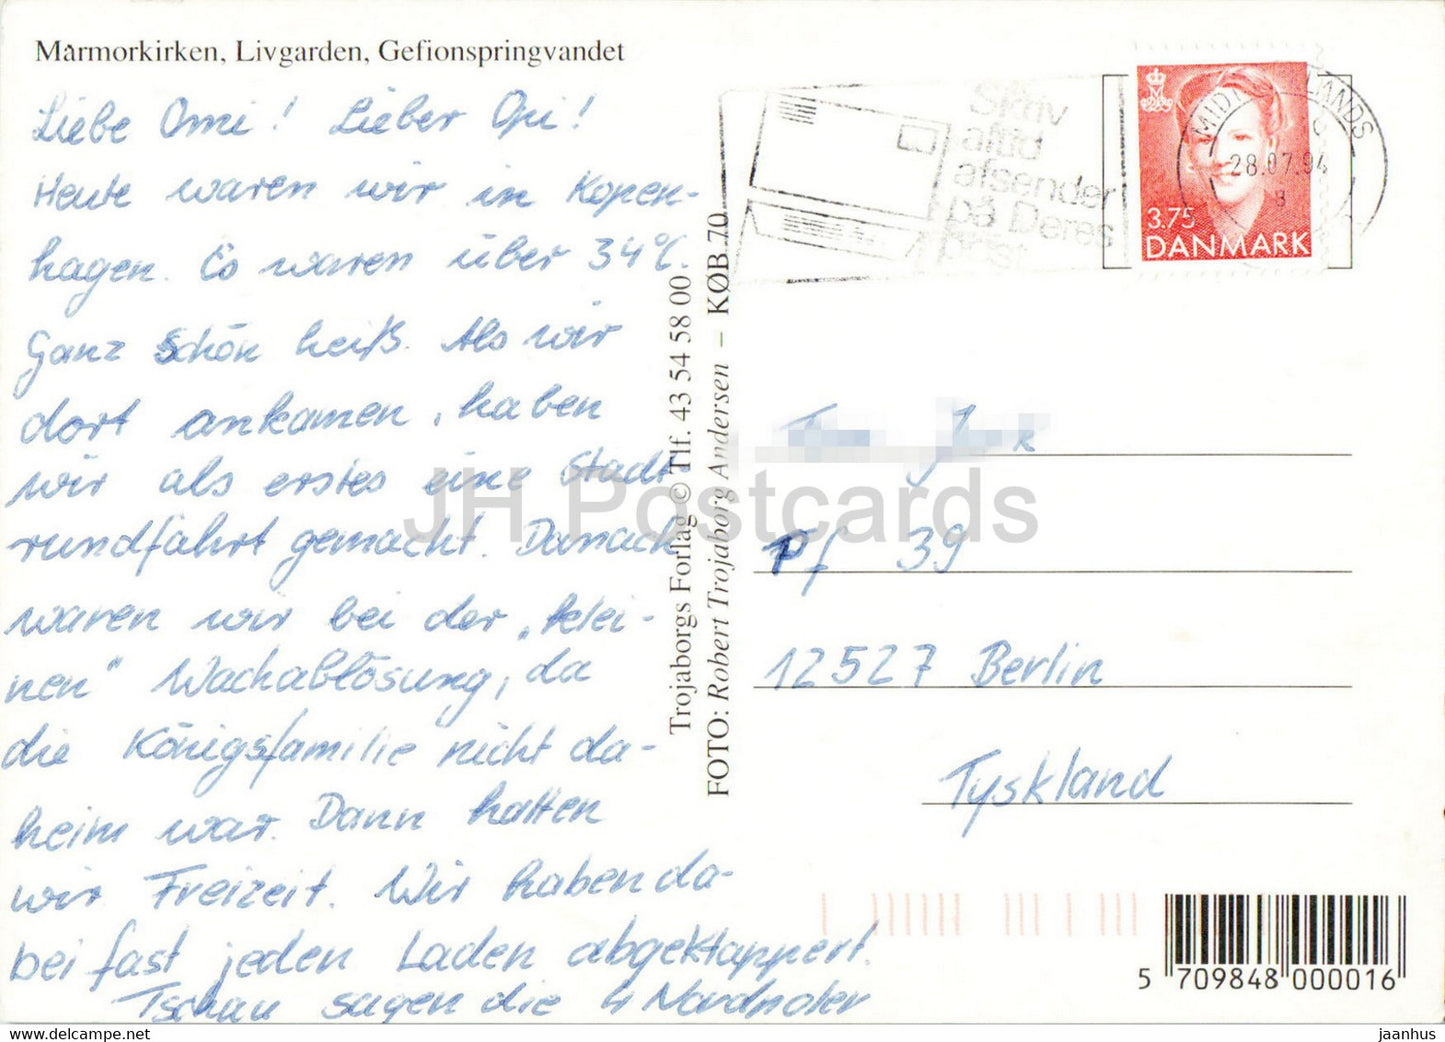 Marmorkirken, Livgarden, Gefionspringvandet
Liebe Omi! Lieber Opi!
Heute waren wir in Kopen-
hagen. Es waren über 34°C.
Ganz schön heiß. Als wir
dort ankamen, haben
wir als erstes eine Stadt-
rundfahrt gemacht. Danach
waren wir bei der „klei-
nen" Wachablösung, da
die Königsfamilie nicht da-
heim war. Dann hatten
wir Freizeit. Wir haben da-
bei fast jeden Laden abgeklappert.
Tschau sagen die 4 Nordpoler
Trojaborgs Forlag © Tlf. 43 54 58 00
FOTO: Robert Trojaborg Andersen – KØB 70
Skriv
altid
afsender
på Deres
post
LANDS
28.07.94
3.75
DANMARK
Pf 39
12527 Berlin
Tyskland
5 709848 000016
JH Postcards
jaanhus
www.delcampe.net